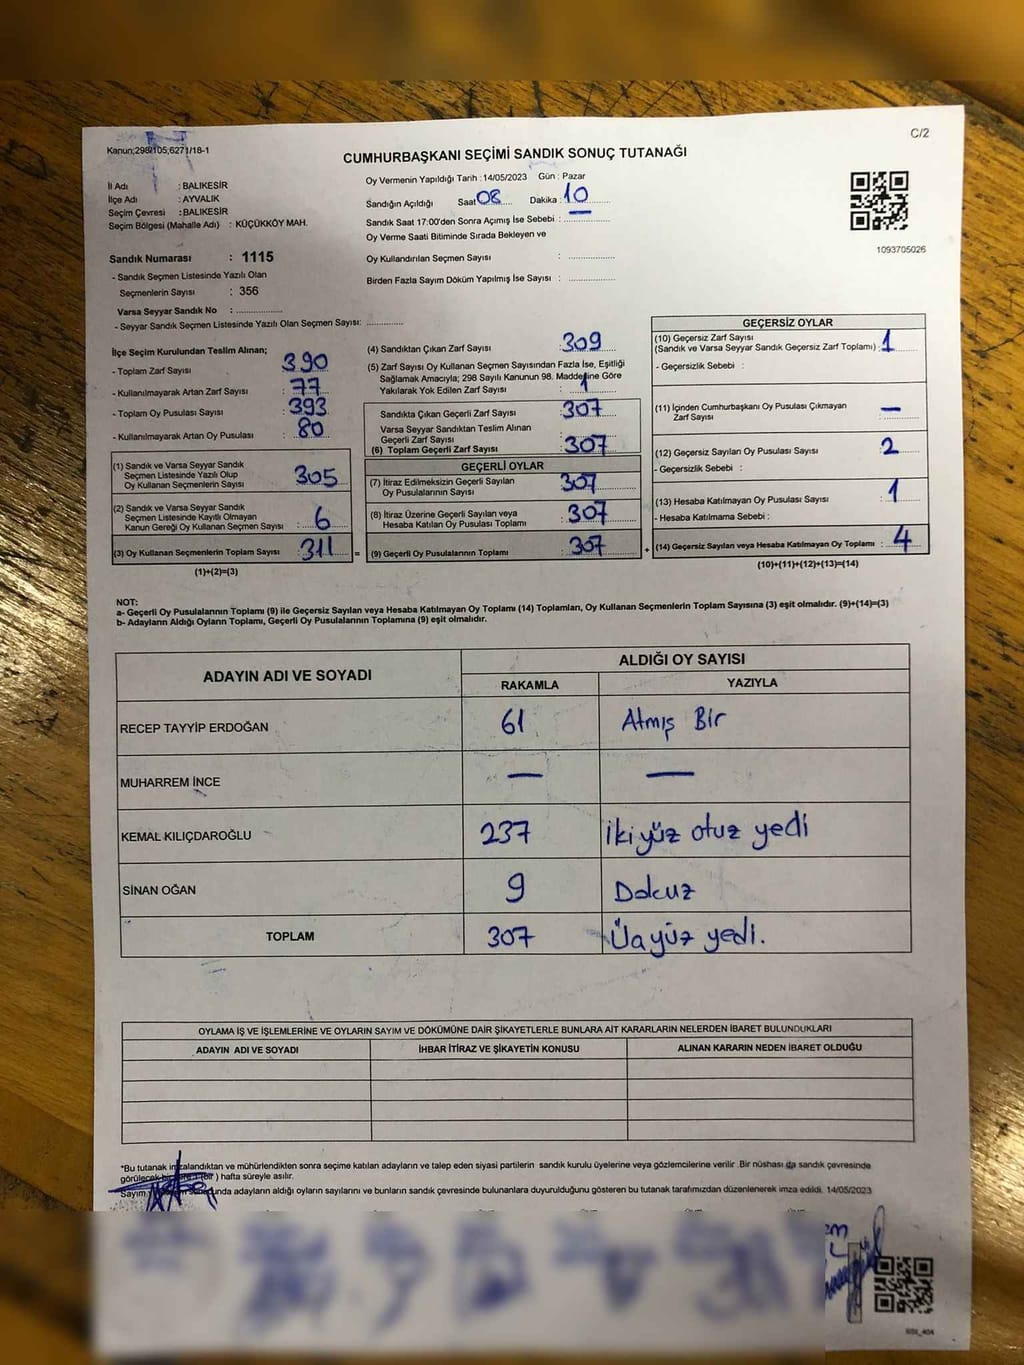 C/2
Kanun;298/105,6271/18-1
CUMHURBAŞKANI SEÇİMİ SANDIK SONUÇ TUTANAĞI
İl Adı : BALIKESİR
İlçe Adı : AYVALIK
Seçim Çevresi : BALIKESİR
Seçim Bölgesi (Mahalle Adı) : KÜÇÜKKÖY MAH.
Oy Vermenin Yapıldığı Tarih : 14/05/2023 Gün : Pazar
Sandığın Açıldığı Saat 08 Dakika : 10
Sandık Saat 17:00'den Sonra Açımış İse Sebebi : —
Oy Verme Saati Bitiminde Sırada Bekleyen ve
Oy Kullandırılan Seçmen Sayısı :
Birden Fazla Sayım Döküm Yapılmış İse Sayısı :
1093705026
Sandık Numarası : 1115
- Sandık Seçmen Listesinde Yazılı Olan
Seçmenlerin Sayısı : 356
Varsa Seyyar Sandık No :
- Seyyar Sandık Seçmen Listesinde Yazılı Olan Seçmen Sayısı:
İlçe Seçim Kurulundan Teslim Alınan;
- Toplam Zarf Sayısı : 390
- Kullanılmayarak Artan Zarf Sayısı : 77
- Toplam Oy Pusulası Sayısı : 393
- Kullanılmayarak Artan Oy Pusulası : 80
(1) Sandık ve Varsa Seyyar Sandık
Seçmen Listesinde Yazılı Olup
Oy Kullanan Seçmenlerin Sayısı : 305
(2) Sandık ve Varsa Seyyar Sandık
Seçmen Listesinde Kayıtlı Olmayan
Kanun Gereği Oy Kullanan Seçmen Sayısı : 6
(3) Oy Kullanan Seçmenlerin Toplam Sayısı : 311 =
(1)+(2)=(3)
(4) Sandıktan Çıkan Zarf Sayısı : 309
(5) Zarf Sayısı Oy Kullanan Seçmen Sayısından Fazla İse, Eşitliği
Sağlamak Amacıyla; 298 Sayılı Kanunun 98. Maddesine Göre
Yakılarak Yok Edilen Zarf Sayısı : 1
Sandıkta Çıkan Geçerli Zarf Sayısı : 307
Varsa Seyyar Sandıktan Teslim Alınan
Geçerli Zarf Sayısı :
(6) Toplam Geçerli Zarf Sayısı : 307
GEÇERLİ OYLAR
(7) İtiraz Edilmeksizin Geçerli Sayılan
Oy Pusulalarının Sayısı : 307
(8) İtiraz Üzerine Geçerli Sayılan veya
Hesaba Katılan Oy Pusulası Toplamı : 307
(9) Geçerli Oy Pusulalarının Toplamı : 307 +
GEÇERSİZ OYLAR
(10) Geçersiz Zarf Sayısı
(Sandık ve Varsa Seyyar Sandık Geçersiz Zarf Toplamı) : 1
- Geçersizlik Sebebi :
(11) İçinden Cumhurbaşkanı Oy Pusulası Çıkmayan
Zarf Sayısı : —
(12) Geçersiz Sayılan Oy Pusulası Sayısı : 2
- Geçersizlik Sebebi :
(13) Hesaba Katılmayan Oy Pusulası Sayısı : 1
- Hesaba Katılmama Sebebi :
(14) Geçersiz Sayılan veya Hesaba Katılmayan Oy Toplamı : 4
(10)+(11)+(12)+(13)=(14)
NOT:
a- Geçerli Oy Pusulalarının Toplamı (9) ile Geçersiz Sayılan veya Hesaba Katılmayan Oy Toplamı (14) Toplamları, Oy Kullanan Seçmenlerin Toplam Sayısına (3) eşit olmalıdır. (9)+(14)=(3)
b- Adayların Aldığı Oyların Toplamı, Geçerli Oy Pusulalarının Toplamına (9) eşit olmalıdır.
ADAYIN ADI VE SOYADI ALDIĞI OY SAYISI
RAKAMLA YAZIYLA
RECEP TAYYİP ERDOĞAN 61 Atmış Bir
MUHARREM İNCE — —
KEMAL KILIÇDAROĞLU 237 İkiyüz otuz yedi
SİNAN OĞAN 9 Dokuz
TOPLAM 307 Üçyüz yedi.
OYLAMA İŞ VE İŞLEMLERİNE VE OYLARIN SAYIM VE DÖKÜMÜNE DAİR ŞİKAYETLERLE BUNLARA AİT KARARLARIN NELERDEN İBARET BULUNDUKLARI
ADAYIN ADI VE SOYADI İHBAR İTİRAZ VE ŞİKAYETİN KONUSU ALINAN KARARIN NEDEN İBARET OLDUĞU
*Bu tutanak imzalandıktan ve mühürlendikten sonra seçime katılan adayların ve talep eden siyasi partilerin sandık kurulu üyelerine veya gözlemcilerine verilir. Bir nüshası da sandık çevresinde
hafta süreyle asılır.
adayların aldığı oyların sayılarını ve bunların sandık çevresinde bulunanlara duyurulduğunu gösteren bu tutanak tarafımızdan düzenlenerek imza edildi. 14/05/2023